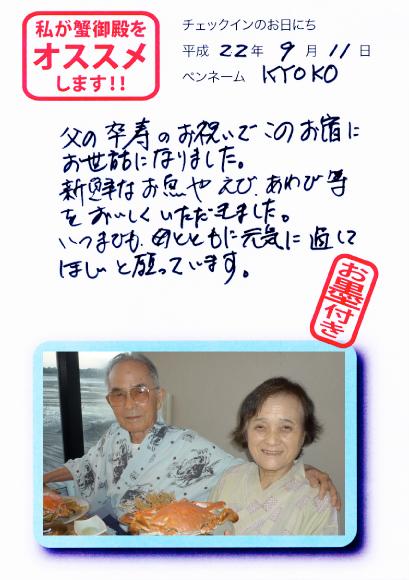 私が蟹御殿を
オススメ
します!!
チェックインのお日にち
平成 22年 9月 11日
ペンネーム KYOKO
父の卒寿のお祝いでこのお宿に
お世話になりました。
新鮮なお魚やえび、あわび等
をおいしくいただきました。
いつまでも、母とともに元気に過して
ほしいと願っています。
お墨付き